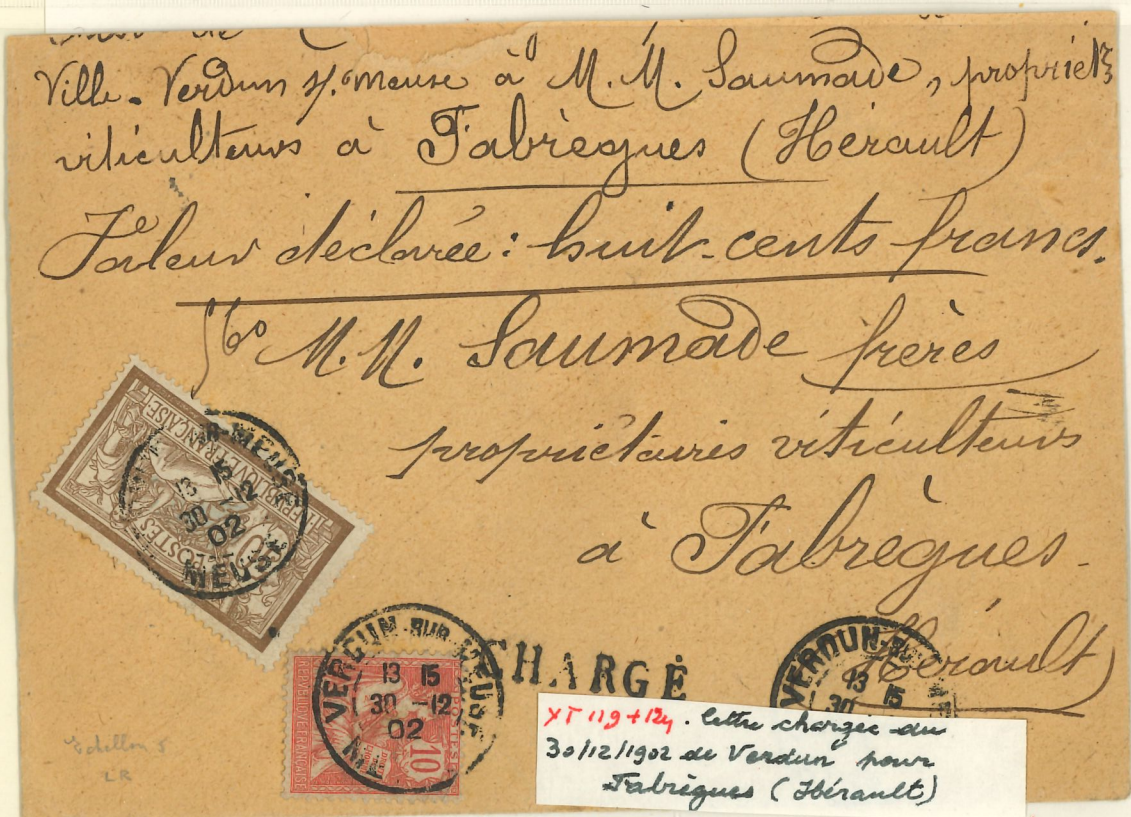 de
Ville. Verdun s/. meuse à M. M. Saumade, propriét
viticulteurs à Fabrègues (Hérault)
Valeur déclarée : huit-cents francs.
M. M. Saumade frères
propriétaires viticulteurs
à Fabrègues.
Hérault)
REPUBLIQUE FRANÇAISE
POSTES
MEUSE
13 15
30 -12
02
MEUSE
VERDUN-SUR-MEUSE
13 15
30 -12
02
POSTES
10
REPUBLIQUE FRANÇAISE
CHARGÉ
VERDUN-SU
13 15
30
YT 119 + 124. lettre chargée du
30/12/1902 de Verdun pour
Fabrègues (Hérault)
Echillon 5
LR